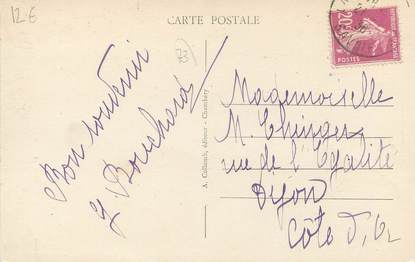 12 €
CARTE POSTALE
73
Bon souvenir
Y Bouchard
A. Collomb, éditeur - Chambéry
20
POSTES
Mademoiselle
M. Ehinger
rue de l'Egalité
Dijon
Côte d'Or